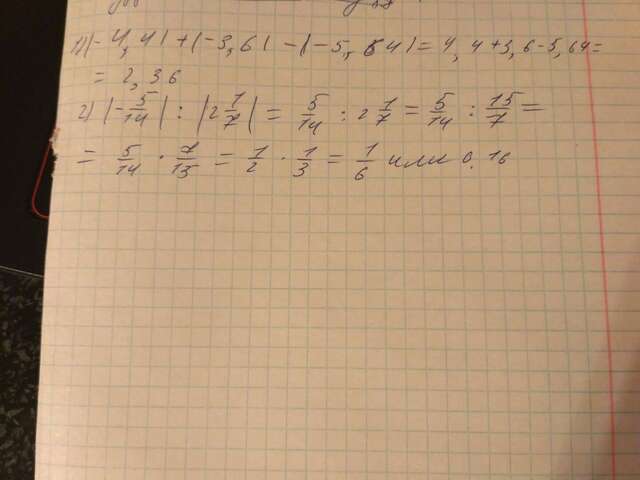 1) |-4,4| + |-3,6| - |-5,64| = 4,4+3,6-5,64=
= 2,36
2) |-5/14| : |2 1/7| = 5/14 : 2 1/7 = 5/14 : 15/7 =
= 5/14 · 7/15 = 1/2 · 1/3 = 1/6 или 0.16